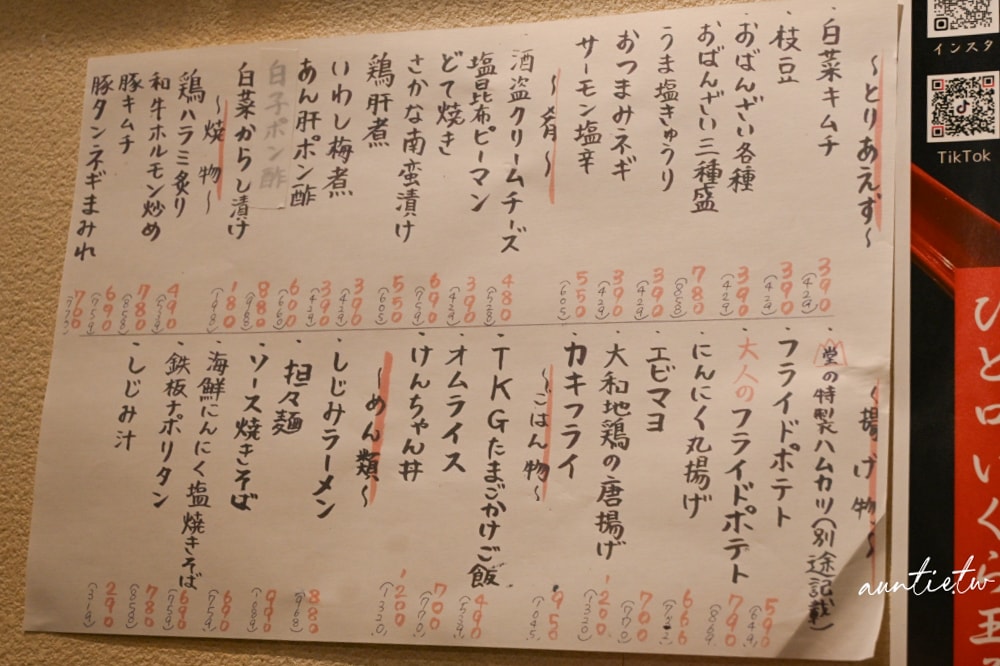 〜とりあえず〜
・白菜キムチ 390 (429)
・枝豆 390 (429)
・おばんざい各種 390 (429)
おばんざい三種盛 780 (858)
うま塩きゅうり 390 (429)
おつまみネギ 390 (429)
サーモン塩辛 550 (605)
〜肴〜
酒盗クリームチーズ 480 (528)
塩昆布ピーマン 390 (429)
どて焼き 690 (759)
さかな南蛮漬け 550 (605)
鶏肝煮 390 (429)
いわし梅煮 390 (429)
あん肝ポン酢 600 (660)
白子ポン酢 880 (968)
白菜からし漬け 180 (198)
〜焼物〜
鶏ハラミ炙り 490 (539)
和牛ホルモン炒め 780 (858)
豚キムチ 690 (759)
豚タンネギまみれ 700 (770)
〜揚げ物〜
・堂の特製ハムカツ(別途記載)
・フライドポテト 590 (649)
・大人のフライドポテト 790 (869)
・にんにく丸揚げ 666 (732)
・エビマヨ 700 (770)
・大和地鶏の唐揚げ 1200 (1320)
・カキフライ 950 (1045)
〜ごはん物〜
・TKGたまごかけご飯 490 (539)
・オムライス 700 (770)
・けんちゃん丼 1200 (1320)
〜めん類〜
・しじみラーメン 880 (968)
・担々麺 990
・ソース焼きそば 690 (759)
・海鮮にんにく塩焼きそば 690 (759)
・鉄板ナポリタン 780 (858)
・しじみ汁 290 (319)
インスタ
TikTok
ひと口いくら
auntie.tw